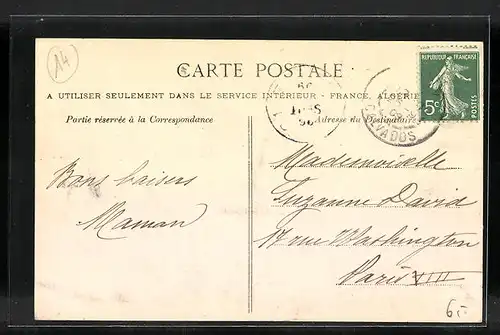 14
CARTE POSTALE
A UTILISER SEULEMENT DANS LE SERVICE INTÉRIEUR - FRANCE, ALGÉRIE
Partie réservée à la Correspondance
Adresse du Destinataire
REPUBLIQUE FRANÇAISE
5c
POSTES
CALVADOS
Bons baisers
Maman
Mademoiselle
Suzanne David
17 rue Washington
Paris VIII
6,-